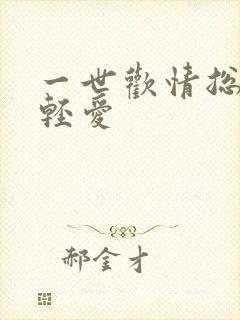 一世歡情總
輕愛
郝金才